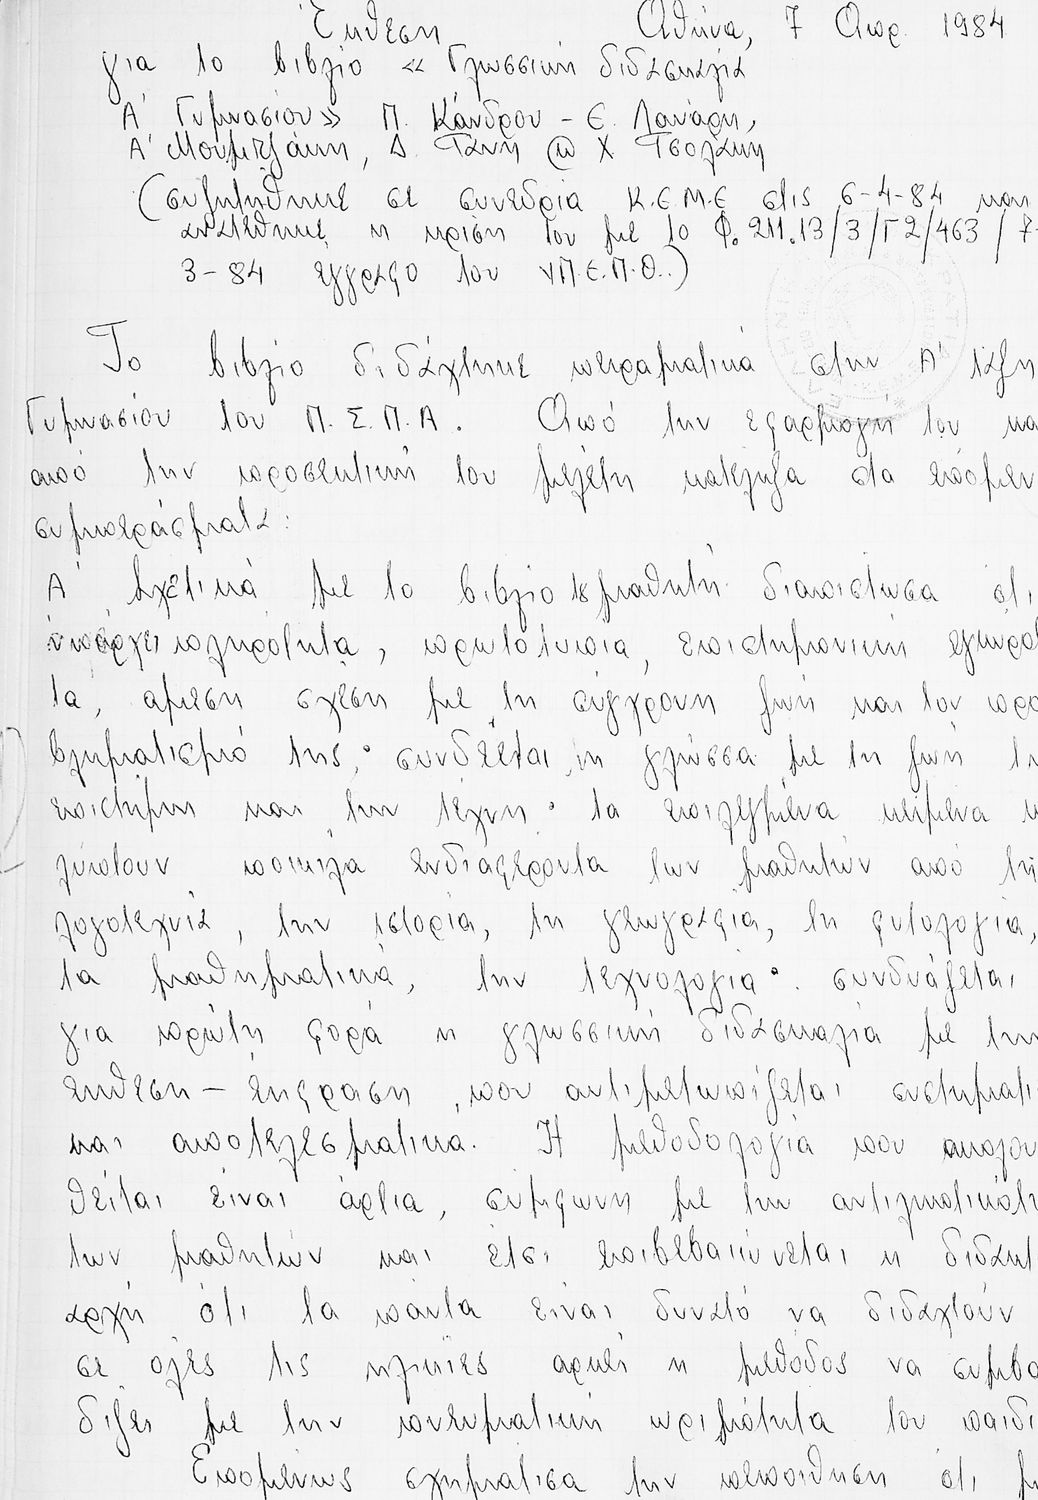 Έκθεση Αθήνα, 7 Απρ. 1984
για το βιβλίο « Γλωσσική διδασκαλία
Α΄ Γυμνασίου» Π. Κάνδρου - Ε.
Α΄ Μουμτζάκη, Δ. Τάνη Χ Τσολάκη
(συζητήθηκε σε συνεδρία Κ.Ε.Μ.Ε στις 6-4-84 και
ανατέθηκε η κρίση του με το Φ. 211.13/3/Γ2/463/7-
3-84 έγγραφο του ΥΠ.Ε.Π.Θ.)
Το βιβλίο διδάχτηκε πειραματικά στην Α΄ τάξη
Γυμνασίου του Π.Σ.Π.Α. Από την εφαρμογή του κα
από την προσεκτική του μελέτη κατέληξα στα επόμεν
συμπεράσματα:
Α΄ Σχετικά με το βιβλίο του μαθητή διαπίστωσα ότι
υπάρχει πληρότητα, πρωτοτυπία, επιστημονική εγκυρό
τα, άμεση σχέση με τη σύγχρονη ζωή και τον προ
βληματισμό της· συνδέεται η γλώσσα με τη ζωή τη
επιστήμη και την τέχνη· τα επιλεγμένα κείμενα κ
λύπτουν ποικίλα ενδιαφέροντα των μαθητών από τη
λογοτεχνία, την ιστορία, τη γεωγραφία, τη φυτολογία,
τα μαθηματικά, την τεχνολογία· συνδυάζεται
για πρώτη φορά η γλωσσική διδασκαλία με την
έκθεση - έκφραση, που αντιμετωπίζεται συστηματι
και αποτελεσματικα. Η μεθοδολογία που ακολου
θείται είναι άρτια, σύμφωνη με την αντιληπτικότη
των μαθητών και έτσι επιβεβαιώνεται η διδακτ
αρχή ότι τα πάντα είναι δυνατό να διδαχτούν
σε όλες τις ηλικίες αρκεί η μέθοδος να συμβα
δίζει με την πνευματική ωριμότητα του παιδι
Επομένως σχημάτισα την πεποίθηση ότι μ